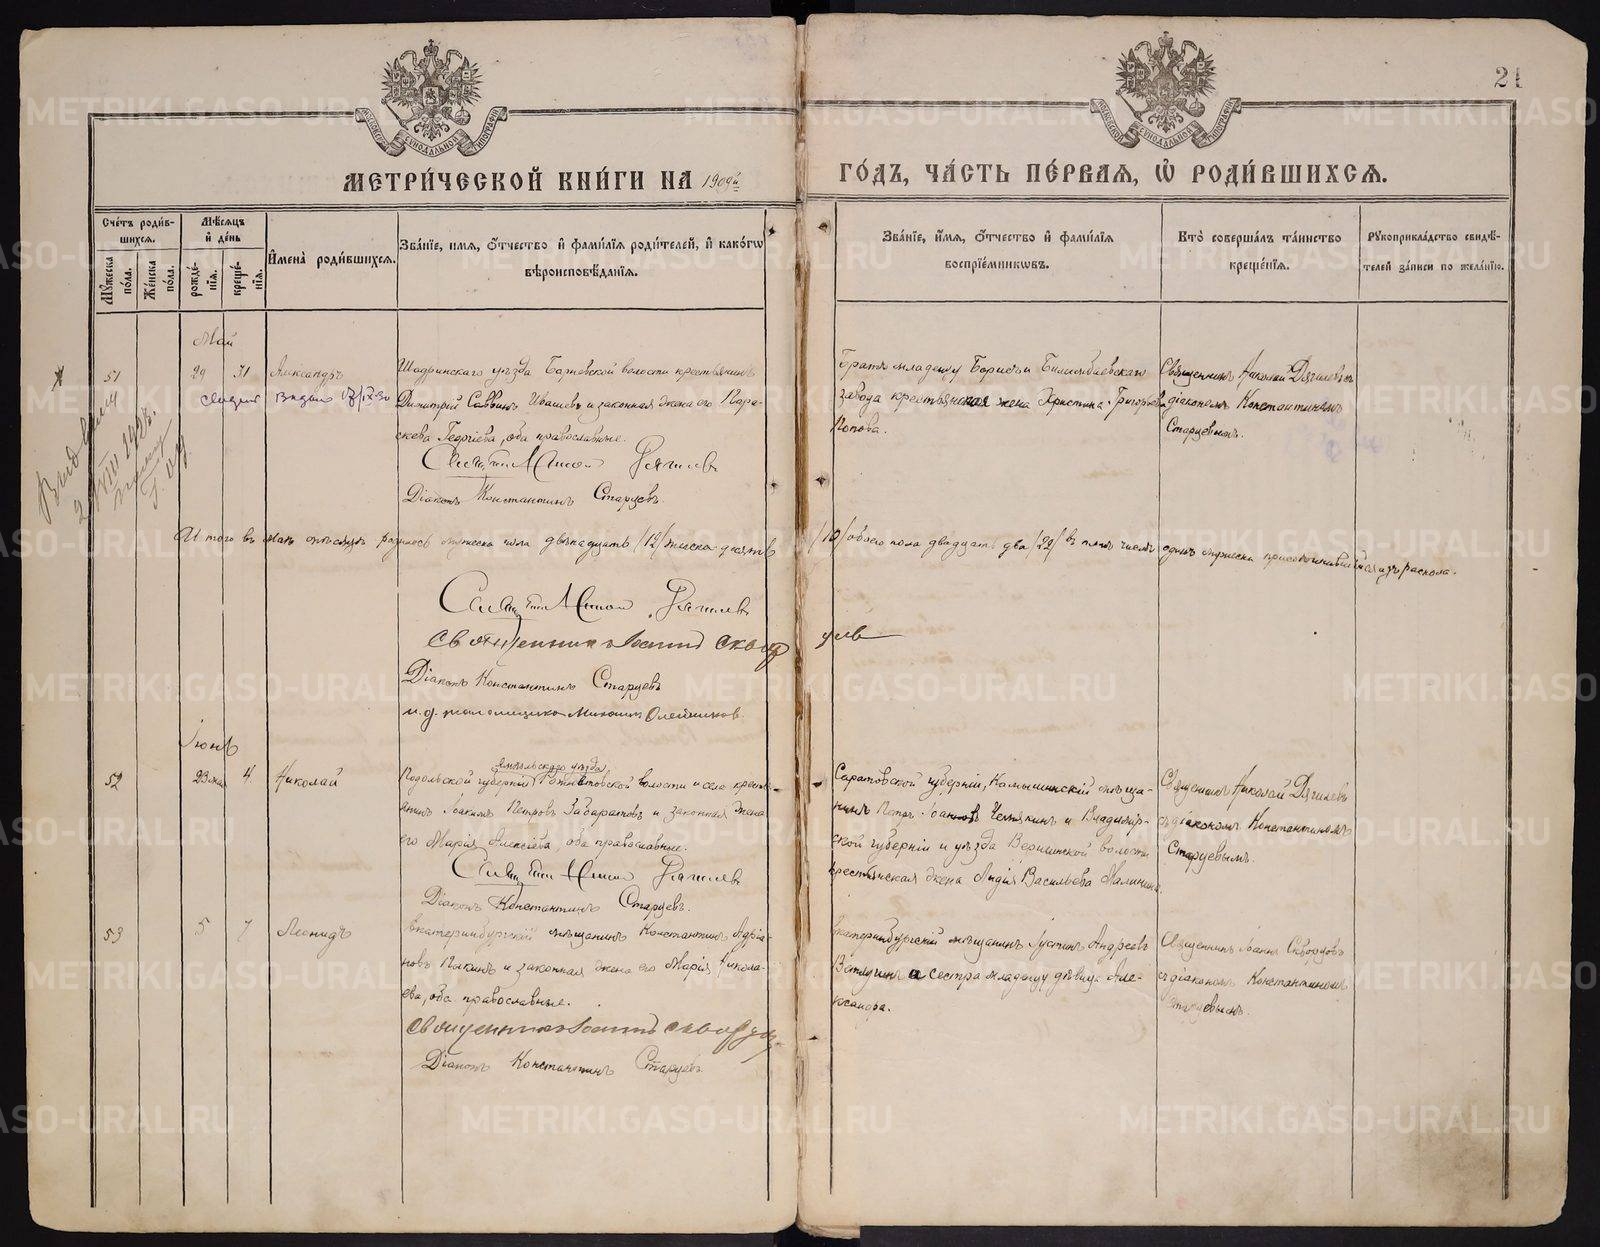 21
МЕТРИ́ЧЕСКОЙ КНИ́ГИ НА 1909й
ГО́ДЪ, ЧА́СТЬ ПЕ́РВАЯ, Ѡ РОДИ́ВШИХСЯ.
Сче́тъ роди́вшихся.
Мꙋ́жеска по́ла.
Же́нска по́ла.
Мѣ́сяцъ и҆ де́нь
рожде́нїя.
креще́нїя.
И҆мена̀ роди́вшихся.
Зва́нїе, имя, ѻ҆́тчество и҆ фами́лїя роди́телей, и҆ како́гѡ
вѣроисповѣ́данїя.
Зва́нїе, и҆́мя, ѻ҆́тчество и҆ фами́лїя
воспрїе́мникѡвъ.
Кто̀ соверша́лъ та́инство
креще́нїя.
Рꙋкоприкла́дство свидѣ́-
телей за́писи по жела́нїю.
Май
51 29 31 Александръ
Шадринскаго уѣзда Барневской волости крестьянинъ
Димитрій Саввинъ Ивашевъ и законная жена его Пара-
скева Георгіева, оба православные.
Діаконъ Константинъ Старцевъ.
Братъ младенцу Борисъ и Билимбаевскаго
завода крестьянская жена Христина Григорьева
Попова.
Священникъ Николай Дягилевъ съ
діакономъ Константиномъ
Старцевымъ.
Итого въ маѣ мѣсяцѣ родилось мужеска пола двѣнадцать /12/ женска десять
/10/ обоего пола двадцать два /22/ въ томъ числѣ одинъ мужеска присоединившійся изъ раскола.
Священникъ Іоаннъ Скворцовъ
Діаконъ Константинъ Старцевъ
и. д. псаломщика Михаилъ Олейниковъ.
Іюнь
52 23 мая 4 Николай
Подольской губерніи волости и села крестья-
нинъ Іоакимъ Петровъ Забаратовъ и законная жена
его Марія Алексіева, оба православные.
Діаконъ Константинъ Старцевъ.
Саратовской губерніи, Камышинскій мѣща-
нинъ Петръ Іоанновъ и Владимір-
ской губерніи и уѣзда волости
крестьянская жена Лидія Васильева Малинина.
Священникъ Николай Дягилевъ
съ діакономъ Константиномъ
Старцевымъ.
53 5 7 Леонидъ
Екатеринбургскій мѣщанинъ Константинъ Адріа-
новъ и законная жена его Марія Никола-
ева, оба православные.
Священникъ Іоаннъ Скворцовъ
Діаконъ Константинъ Старцевъ.
Екатеринбургскій мѣщанинъ Іустинъ Андреевъ
и сестра младенцу дѣвица Але-
ксандра.
Священникъ Іоаннъ Скворцовъ
съ діакономъ Константиномъ
Старцевымъ.
METRIKI.GASO-URAL.RU